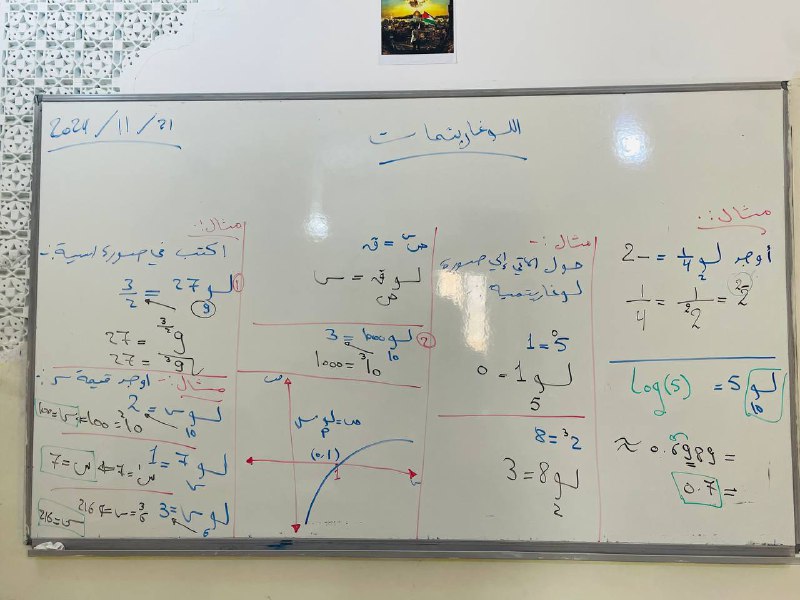 اللوغاريتمات
2024/11/21
مثال:-
أوجد لو₂ 1/4 = -2
1/4 = 1/2² = 2⁻²
لو₁₀ 5 = log(5)
≈ 0.6989 =
0.7 =
مثال:-
حول الآتي إلى صورة
لوغاريتمية
5⁰ = 1
لو₅ 1 = 0
2³ = 8
لو₂ 8 = 3
ص^س = ق
لو_ص ق = س
② لو₁₀ 1000 = 3
10³ = 1000
ص
ص = لو س
(0.1)
1
س
مثال:-
اكتب في صورة اسية:-
① لو₉ 27 = 3/2
9^(3/2) = 27
√9³ = 27
مثال:- أوجد قيمة س:-
لو₁₀ س = 2
10² = 100 = س = 100
لو_س 7 = 1
س¹ = 7 ⇐ س = 7
لو₆ س = 3
6³ = س ⇐ 216 س = 216